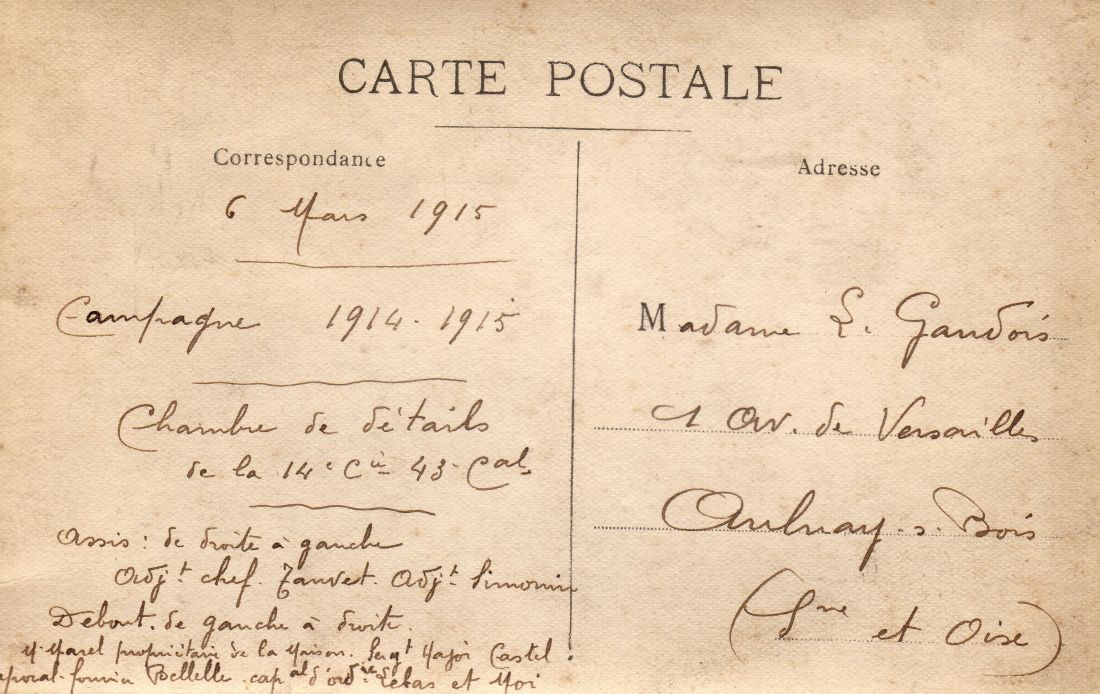 CARTE POSTALE
Correspondance
6 Mars 1915
Campagne 1914-1915
Chambre de détails
de la 14e Cie 43e Cal
Assis : de droite à gauche
Adjt chef. Tanvet. Adjt Simonin
Debout. de gauche à droite.
Mr Marel propriétaire de la Maison. Sergt Major Castel
caporal-fourrier Bellelle. capal d'ordre Lebas et Moi
Adresse
Madame L. Gandois
1 Av. de Versailles
Aulnay-s-Bois
(Sne et Oise)